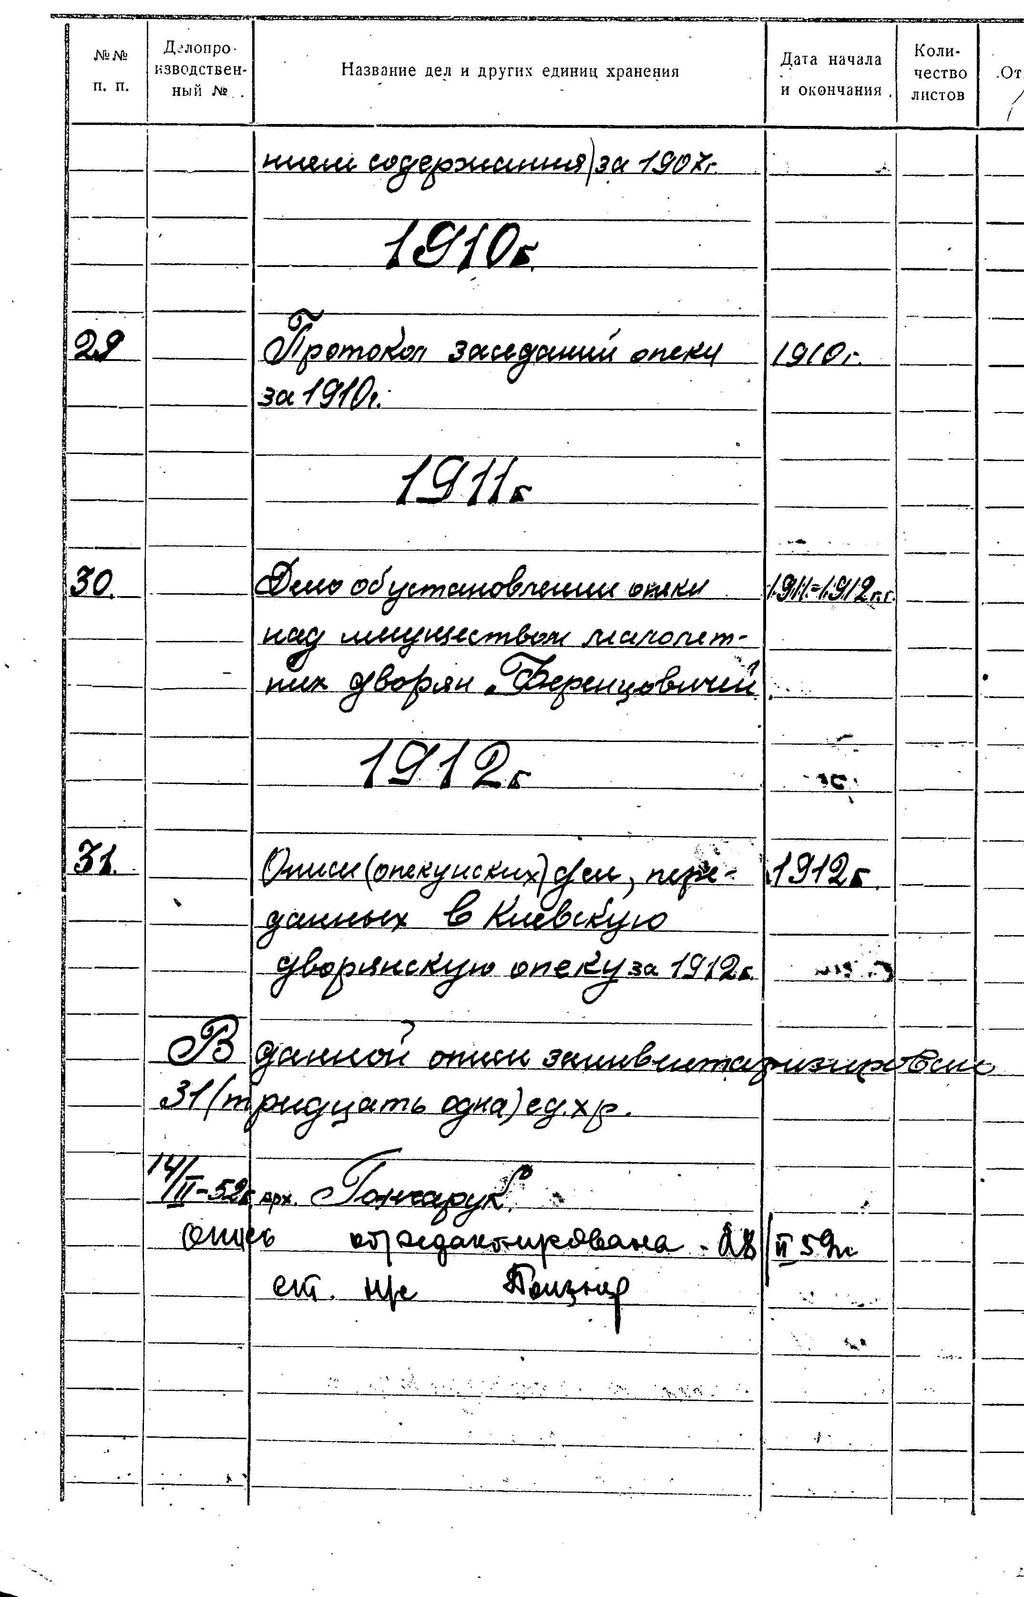 №№ п. п.
Делопроизводственный №
Название дел и других единиц хранения
Дата начала и окончания
Количество листов
От
нием содержания) за 1907г.
1910г.
29 Протокол заседаний опеки 1910г.
за 1910г.
1911г
30. Дело об установлении опеки 1911-1912г.г.
над имуществом малолет-
них дворян Беренцовичей.
1912г
31. Описи (опекунских) дел, пере- 1912г.
данных в Киевскую
дворянскую опеку за 1912г.
В данной описи заинвентаризировано
31 (тридцать одна) ед. хр.
14/II-52г. арх. Гончарук.
Опись отредактирована - 28/II 59г.
ст. н/с